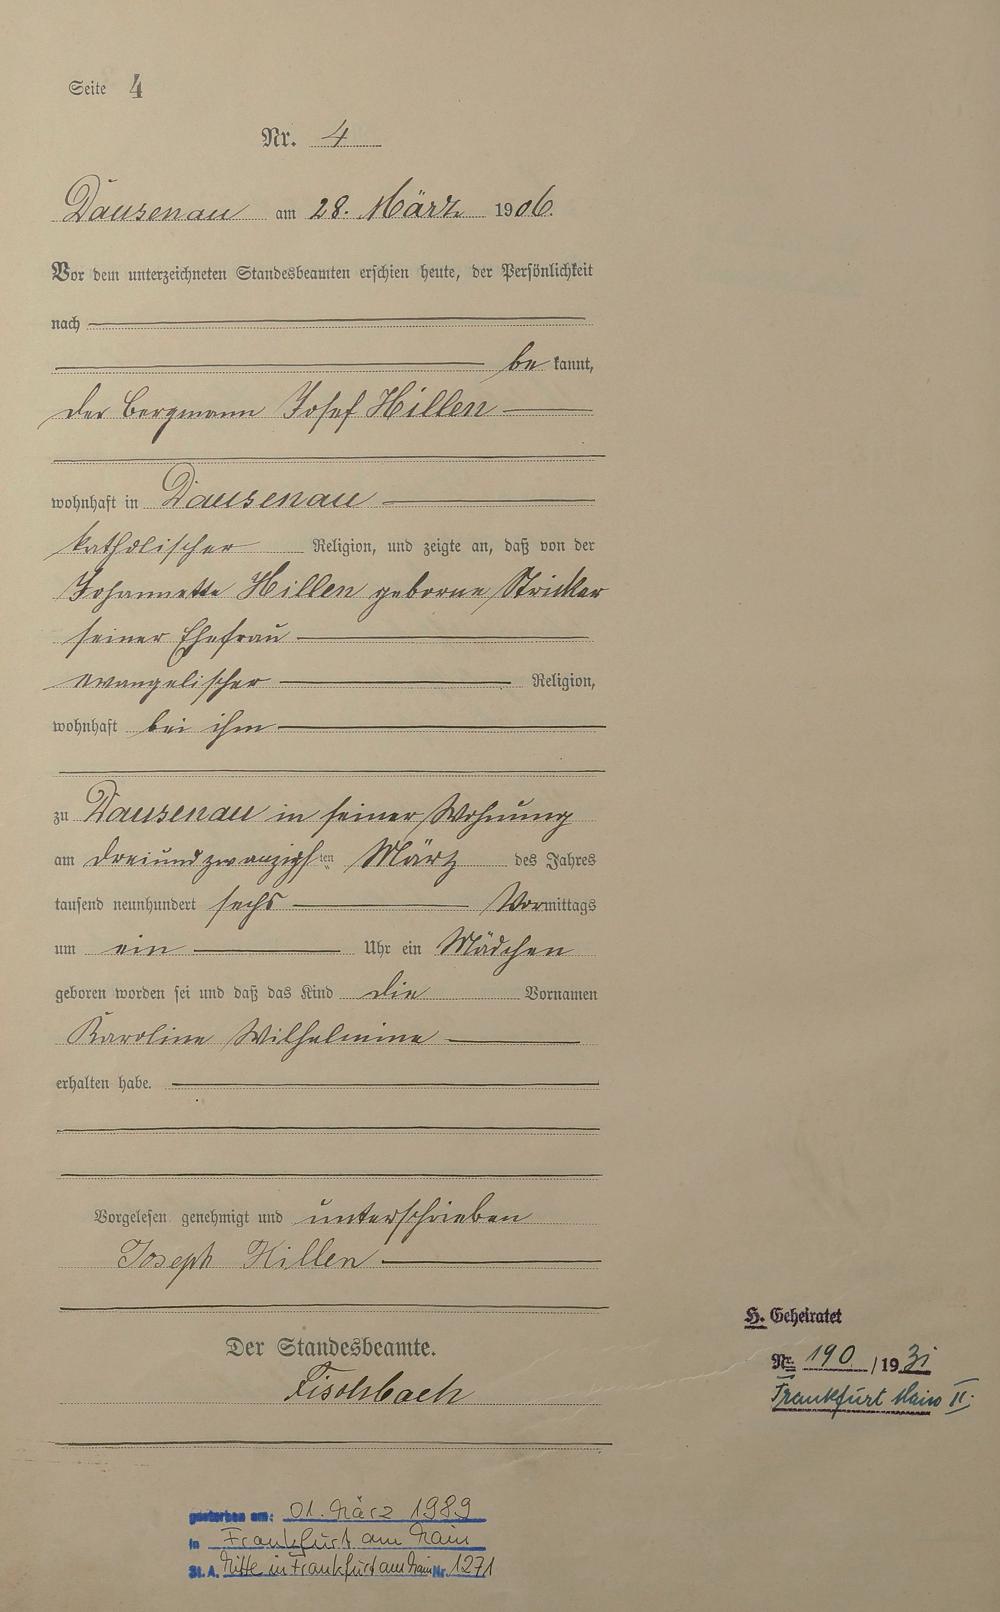 Seite 4
Nr. 4
Dausenau am 28. März 1906.
Vor dem unterzeichneten Standesbeamten erschien heute, der Persönlichkeit
nach
be kannt,
der Bergmann Josef Hillen
wohnhaft in Dausenau
katholischer Religion, und zeigte an, daß von der
Johannette Hillen geborne Stricker
seiner Ehefrau
evangelischer Religion,
wohnhaft bei ihm
zu Dausenau in seiner Wohnung
am dreiundzwanzigsten März des Jahres
tausend neunhundert sechs Vormittags
um ein Uhr ein Mädchen
geboren worden sei und daß das Kind die Vornamen
Karoline Wilhelmine
erhalten habe.
Vorgelesen genehmigt und unterschrieben
Joseph Hillen
Der Standesbeamte.
Fischbach
H. Geheiratet
Nr. 190 / 1931
Frankfurt Main II.
gestorben am: 01. März 1989
in Frankfurt am Main
St. A. Mitte in Frankfurt am Main Nr. 1271